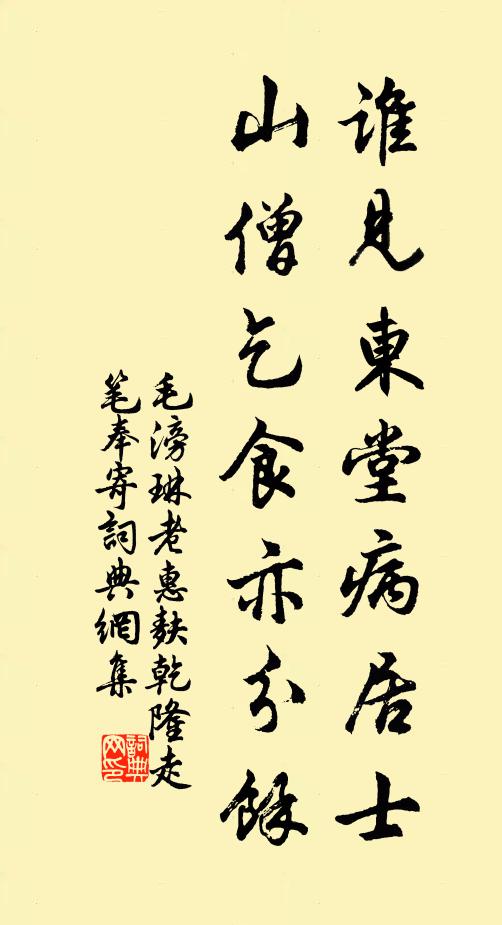 誰見東堂病居士
山僧乞食亦分餘
毛滂琳老惠麩乾隆走
笔奉寄詞典網集
詞典
网印